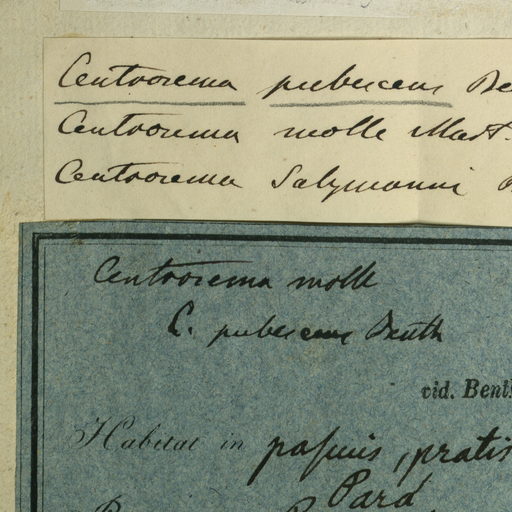 Centrosema pubescens Be
Centrosema molle Mart.
Centrosema Salzmanni
Centrosema molle
C. pubescens Benth
vid. Bent
Habitat in pascuis, pratis
Pará